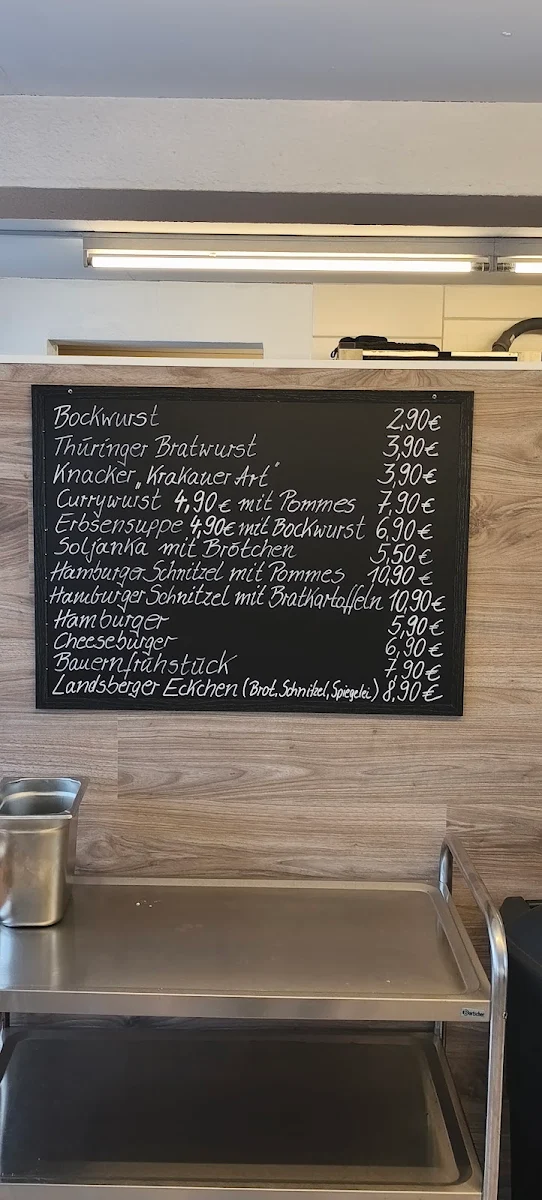 Bockwurst 2,90€
Thüringer Bratwurst 3,90€
Knacker „Krakauer Art" 3,90€
Currywurst 4,90€ mit Pommes 7,90€
Erbsensuppe 4,90€ mit Bockwurst 6,90€
Soljanka mit Brötchen 5,50€
Hamburger Schnitzel mit Pommes 10,90€
Hamburger Schnitzel mit Bratkartoffeln 10,90€
Hamburger 5,90€
Cheeseburger 6,90€
Bauernfrühstück 7,90€
Landsberger Eckchen (Brot, Schnitzel, Spiegelei) 8,90€
Bartscher